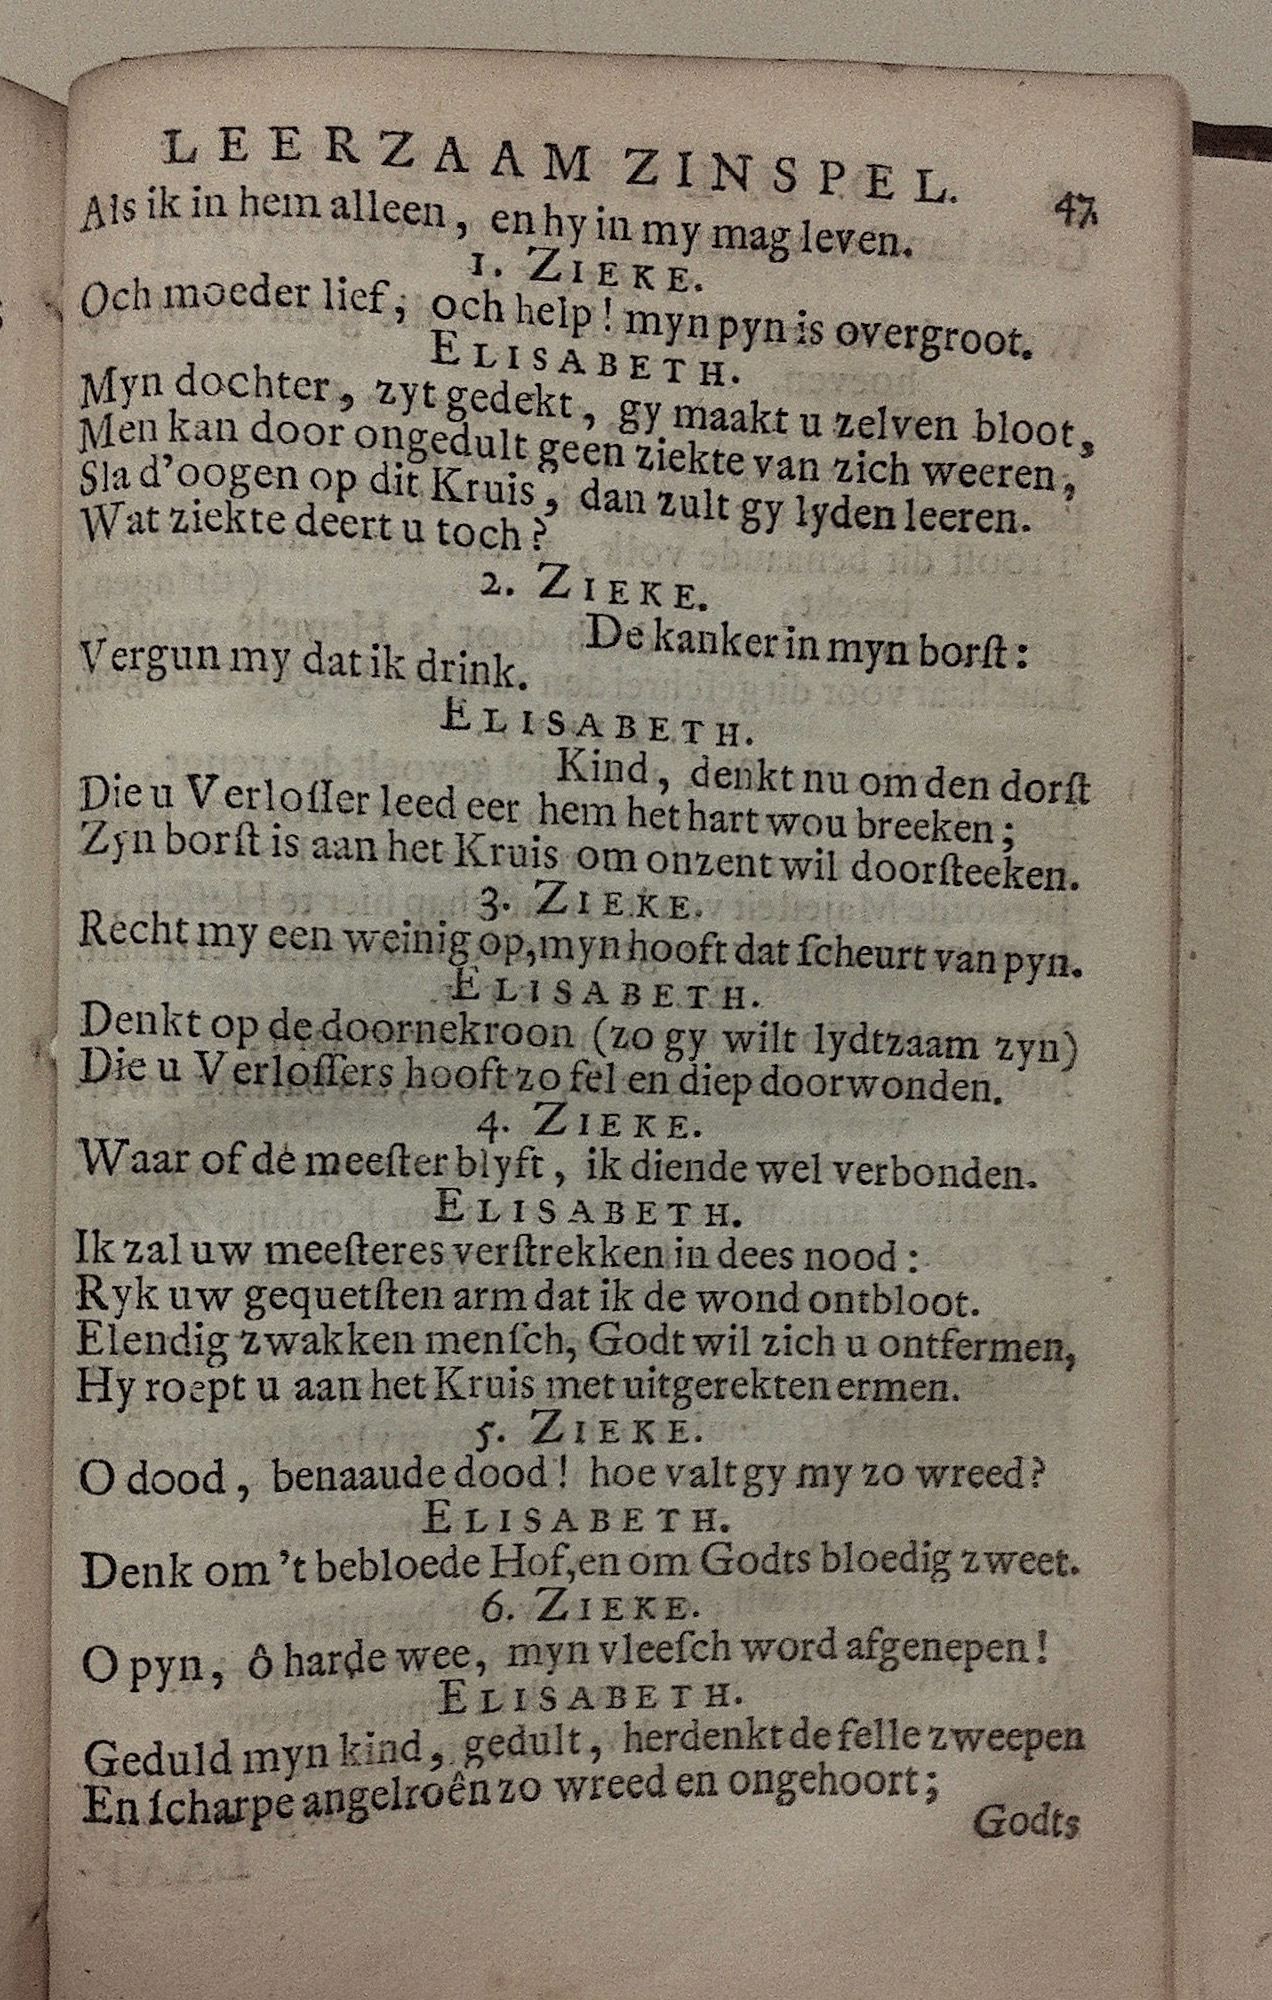 LEERZAAM ZINSPEL. 47
Als ik in hem alleen, en hy in my mag leven.
1. ZIEKE.
Och moeder lief, och help! myn pyn is overgroot.
ELISABETH.
Myn dochter, zyt gedekt, gy maakt u zelven bloot,
Men kan door ongedult geen ziekte van zich weeren,
Sla d'oogen op dit Kruis, dan zult gy lyden leeren.
Wat ziekte deert u toch?
2. ZIEKE.
De kanker in myn borſt:
Vergun my dat ik drink.
ELISABETH.
Kind, denkt nu om den dorſt
Die u Verloſſer leed eer hem het hart wou breeken;
Zyn borſt is aan het Kruis om onzent wil doorſteeken.
3. ZIEKE.
Recht my een weinig op, myn hooft dat ſcheurt van pyn.
ELISABETH.
Denkt op de doornekroon (zo gy wilt lydtzaam zyn)
Die u Verloſſers hooft zo fel en diep doorwonden.
4. ZIEKE.
Waar of de meeſter blyft, ik diende wel verbonden.
ELISABETH.
Ik zal uw meeſteres verſtrekken in dees nood:
Ryk uw gequetſten arm dat ik de wond ontbloot.
Elendig zwakken menſch, Godt wil zich u ontfermen,
Hy roept u aan het Kruis met uitgerekten ermen.
5. ZIEKE.
O dood, benaaude dood! hoe valt gy my zo wreed?
ELISABETH.
Denk om 't bebloede Hof, en om Godts bloedig zweet.
6. ZIEKE.
O pyn, ô harde wee, myn vleeſch word afgenepen!
ELISABETH.
Geduld myn kind, gedult, herdenkt de felle zweepen
En ſcharpe angelroên zo wreed en ongehoort;
Godts